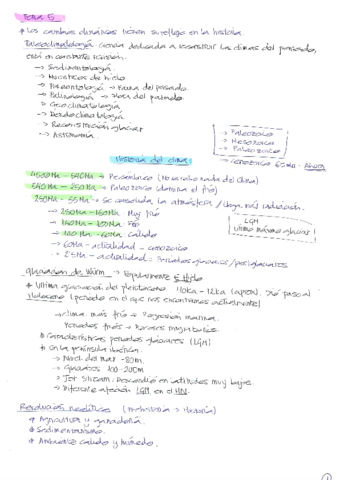 Tema 5
* Los cambios climáticos tienen su reflejo en la historia.
Paleoclimatología: ciencia dedicada a reconstruir los climas del pasado,
está en constante revisión.
→ Sedimentología
→ Muestras de hielo
→ Paleontología → Fauna del pasado
→ Palinología → Flora del pasado
→ Geoclimatología
→ Dendroclimatología
→ Reconstrucción glaciar
→ Astronomía
→ Paleozoico
→ Mesozoico
→ Cenozoico 65Ma - Ahora
Historia del clima
4500Ma - 540Ma → Precámbrico (No se sabe nada del clima)
540Ma - 250Ma → Paleozoico (domina el frío)
250Ma - 55Ma → Se consolida la atmósfera / llega más radiación.
→ 250Ma - 160Ma Muy frío
→ 160Ma - 100Ma Frío
→ 100Ma - 60Ma Cálido
→ 60Ma - actualidad - Cenozoico
→ 2'5Ma - actualidad = Periodos glaciares / postglaciares
LGM
Último máximo glaciar
Glaciación de Würm → Popularmente E. Hielo
* Última glaciación del pleistoceno 110Ka - 12Ka (aprox). Dio paso al
Holoceno (periodo en el que nos encontramos actualmente)
→ Clima más frío → Regresión marina.
Periodos fríos → Procesos migratorios
* Características periodos glaciares (LGM)
* En la península ibérica.
→ Nivel del mar -80m.
→ Glaciares 100-200m
→ Jet Stream: Descendió en latitudes muy bajas
→ Diferente afección LGM en el HN.
Revolución neolítica (Prehistoria → Historia)
* Agricultura y ganadería
* Sedentarismo.
* Ambiente cálido y húmedo.
1